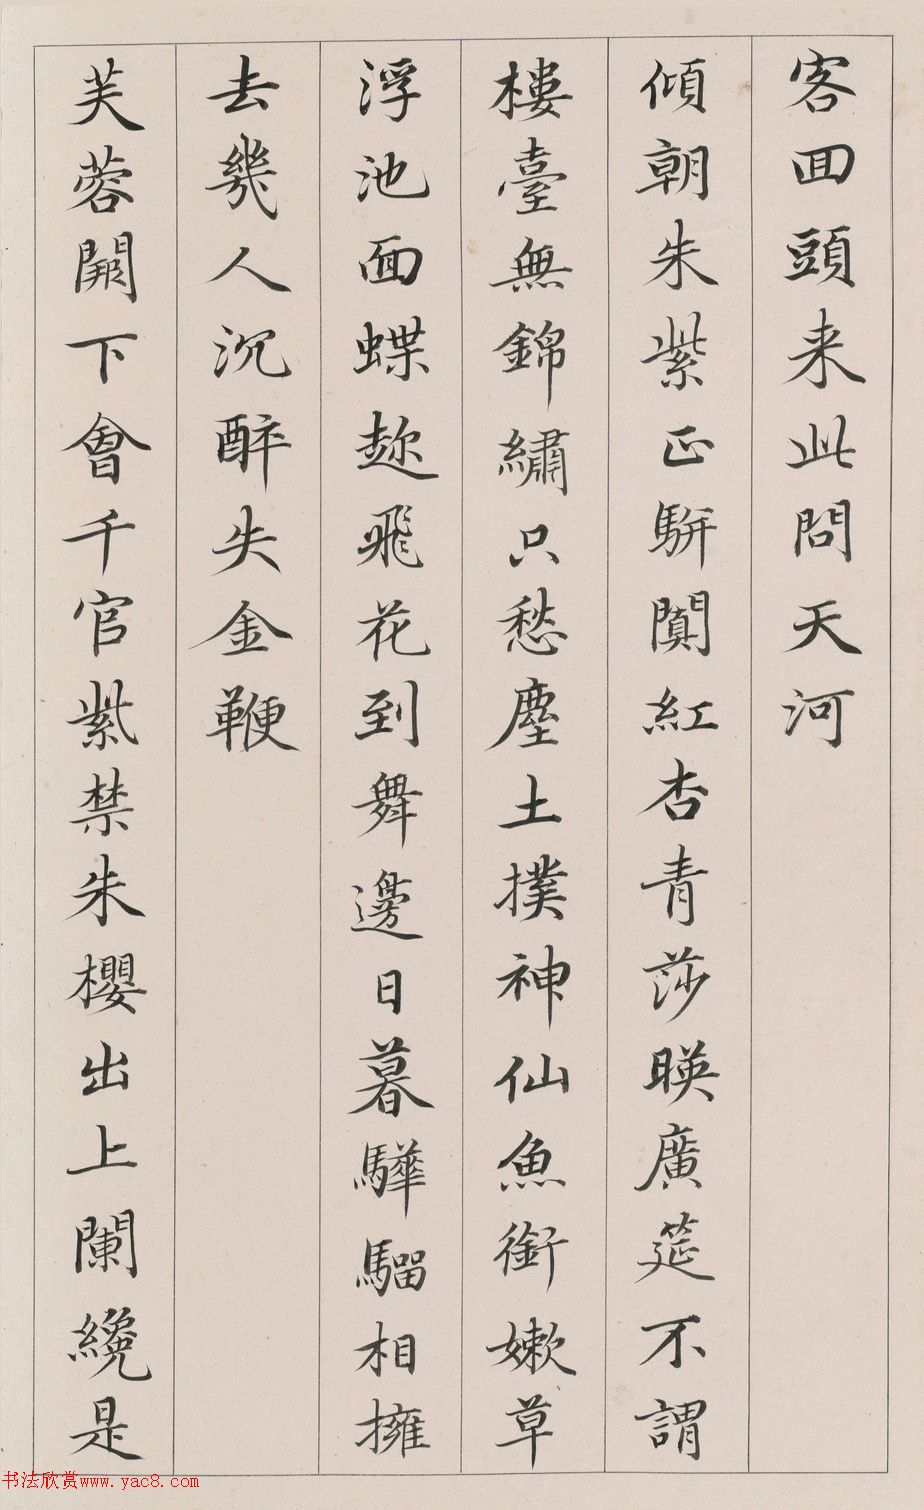 客囬頭来此問天河
傾朝朱紫正駢闐紅杏青莎暎廣筵不謂
樓臺無錦繡只愁塵土撲神仙魚銜嫩草
浮池面蝶趂飛花到舞邊日暮驊騮相擁
去幾人沉醉失金鞭
芙蓉闕下會千官紫禁朱櫻出上闌纔是
书法欣赏www.yac8.com